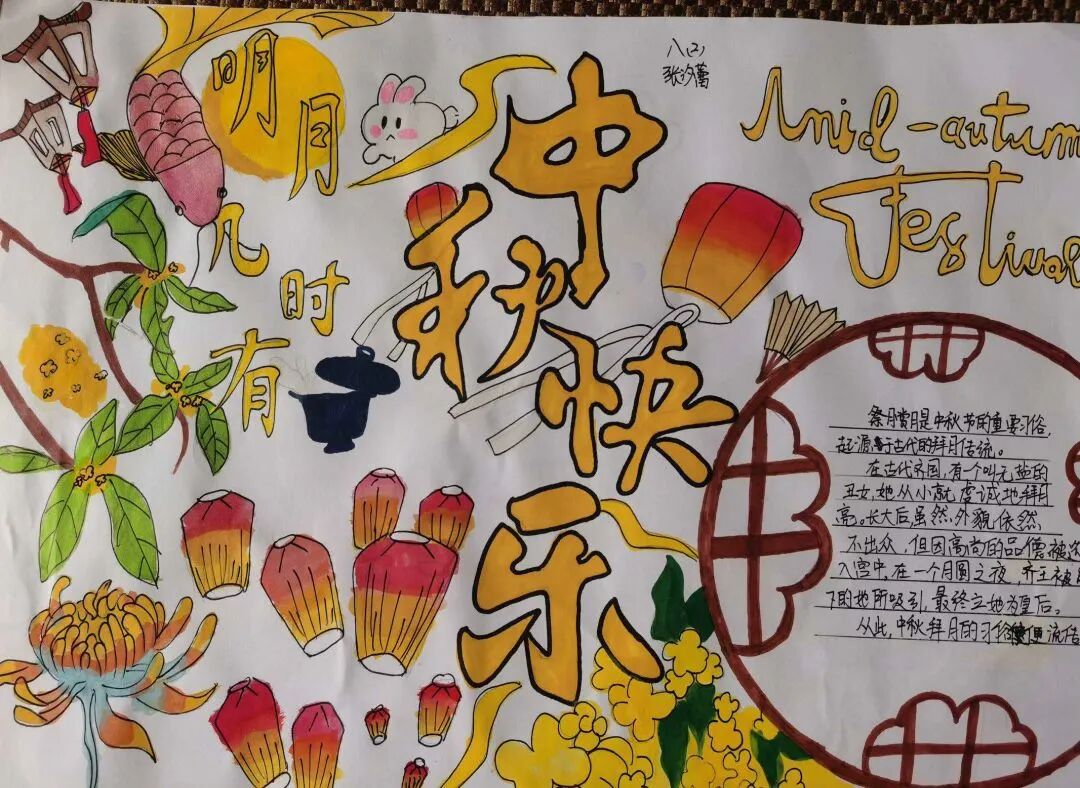 明月
几时
有
中秋快乐
八(2)
张汐蕾
Mid-autum
Festival
祭月赏月是中秋节的重要习俗,
起源于古代的拜月传统。
在古代齐国,有个叫无盐的
丑女,她从小就虔诚地拜月
亮。长大后虽然外貌依然
不出众,但因高尚的品德被选
入宫中。在一个月圆之夜,齐王被
下的她所吸引,最终立她为皇后。
从此,中秋拜月的习俗便流传